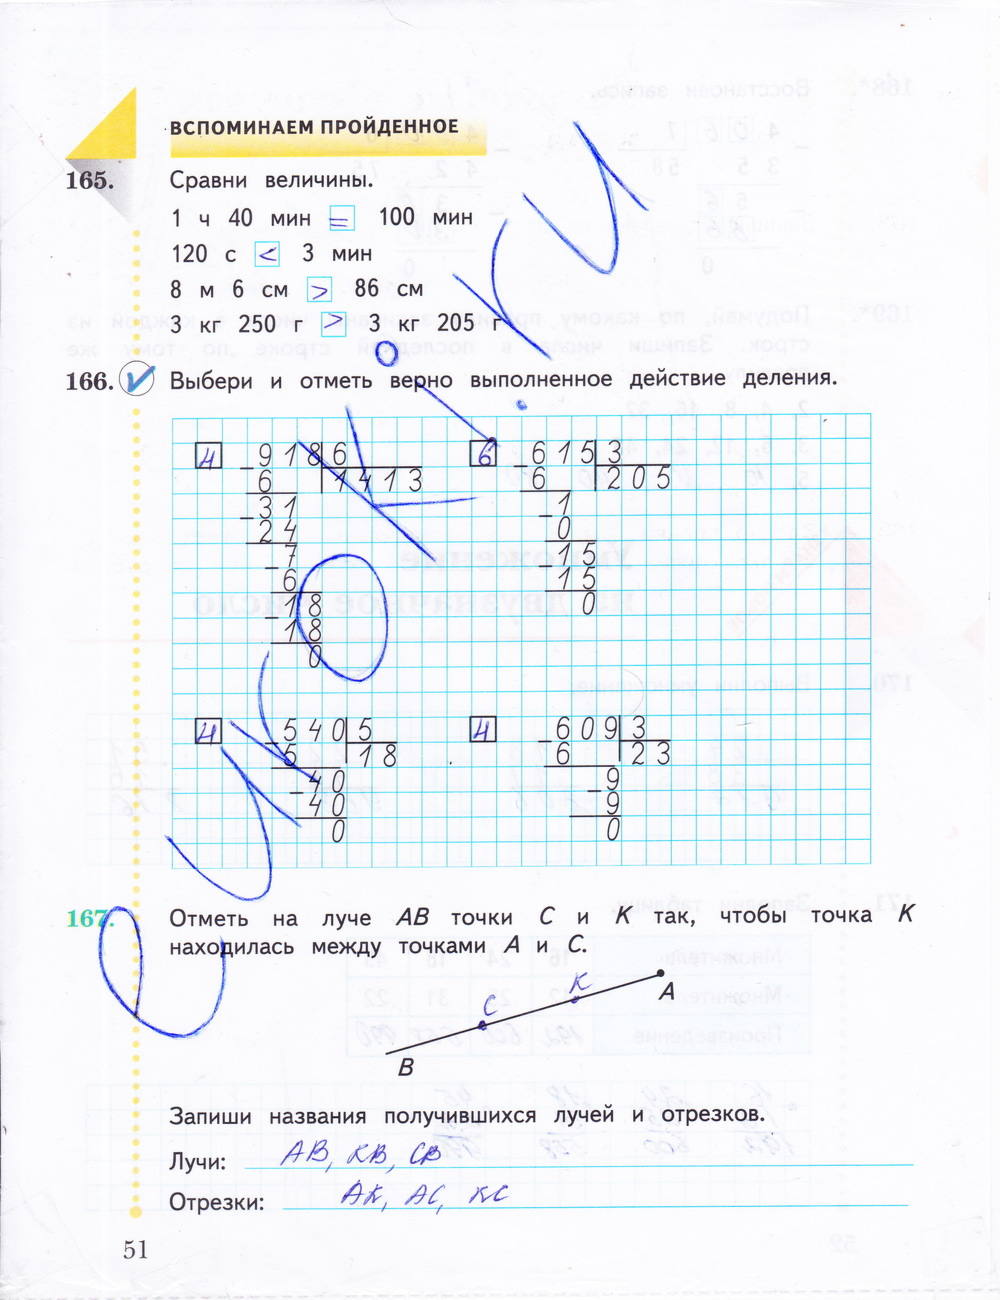 ВСПОМИНАЕМ ПРОЙДЕННОЕ
165. Сравни величины.
1 ч 40 мин = 100 мин
120 с < 3 мин
8 м 6 см > 86 см
3 кг 250 г > 3 кг 205 г
166. Выбери и отметь верно выполненное действие деления.
н 918 6
6 1413
31
24
7
6
18
18
0
в 615 3
6 205
1
0
15
15
0
н 540 5
5 18
40
40
0
н 609 3
6 23
9
9
0
167. Отметь на луче AB точки C и K так, чтобы точка K
находилась между точками A и C.
K
A
C
B
Запиши названия получившихся лучей и отрезков.
Лучи: AB, KB, CB
Отрезки: AK, AC, KC
51